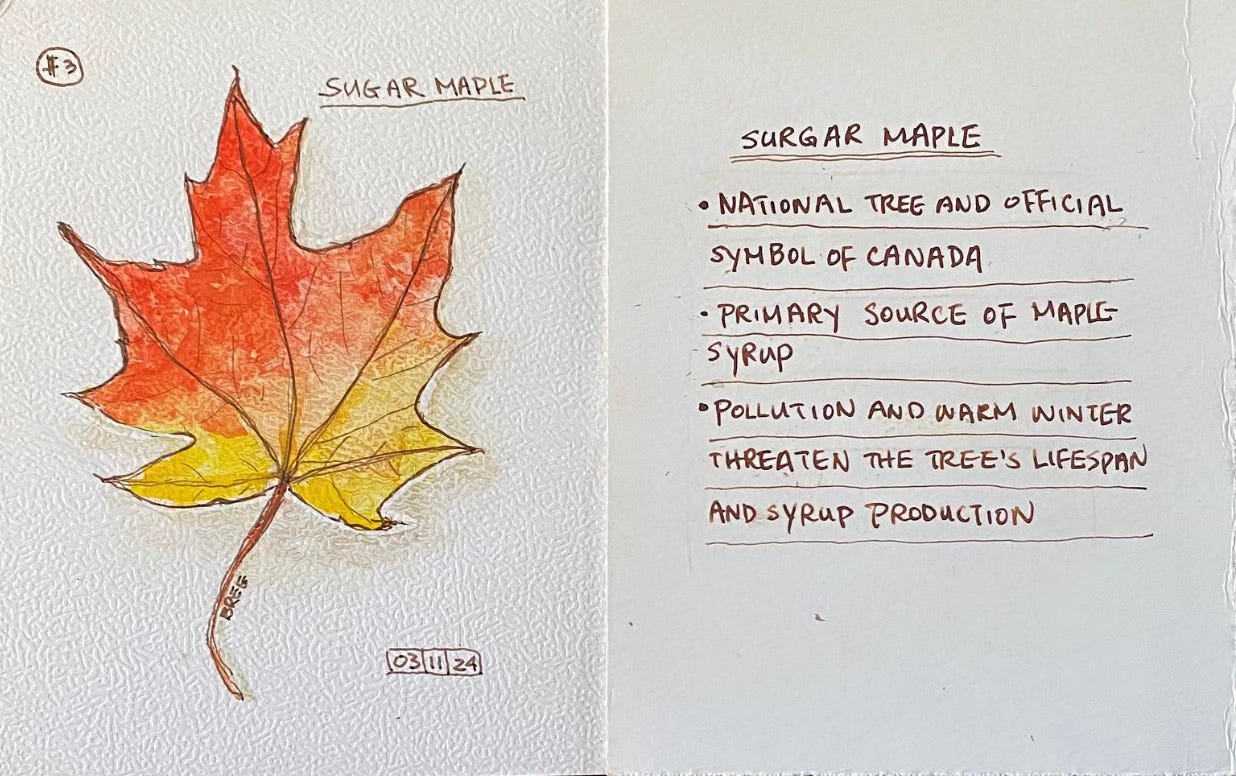 #3
SUGAR MAPLE
BREE
03 11 24
SURGAR MAPLE
• NATIONAL TREE AND OFFICIAL
SYMBOL OF CANADA
• PRIMARY SOURCE OF MAPLE
SYRUP
• POLLUTION AND WARM WINTER
THREATEN THE TREE'S LIFESPAN
AND SYRUP PRODUCTION